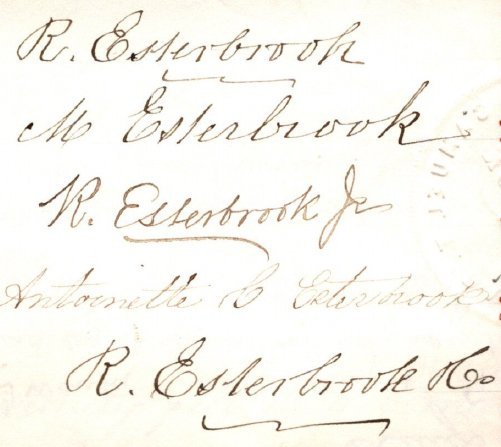 R. Esterbrook
M Esterbrook
R. Esterbrook Jr
Antoinette C Esterbrook
R. Esterbrook & Co